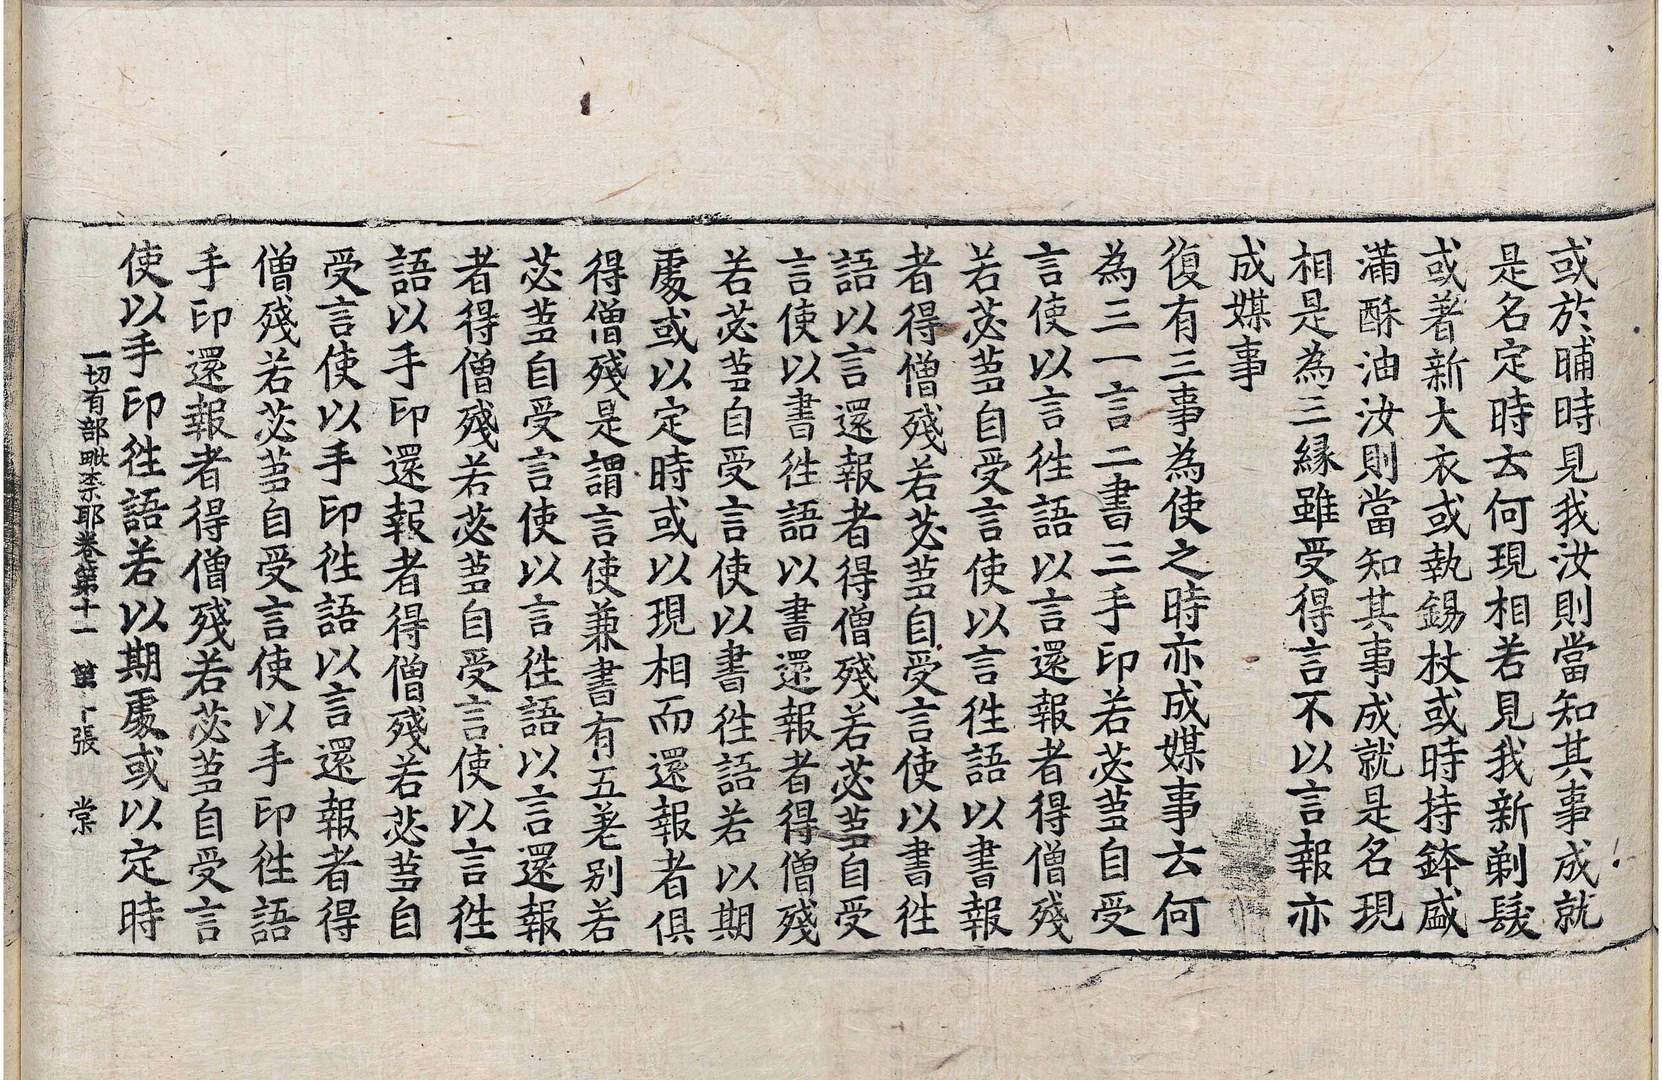 或於晡時見我汝則當知其事成就
是名定時云何現相若見我新剃髮
或著新大衣或執錫杖或時持鉢盛
滿酥油汝則當知其事成就是名現
相是為三緣雖受得言不以言報亦
成媒事
復有三事為使之時亦成媒事云何
為三一言二書三手印若苾芻自受
言使以言往語以言還報者得僧殘
若苾芻自受言使以言往語以書報
者得僧殘若苾芻自受言使以書往
語以言還報者得僧殘若苾芻自受
言使以書往語以書還報者得僧殘
若苾芻自受言使以書往語若以期
處或以定時或以現相而還報者俱
得僧殘是謂言使兼書有五差別若
苾芻自受言使以言往語以言還報
者得僧殘若苾芻自受言使以言往
語以手印還報者得僧殘若苾芻自
受言使以手印往語以言還報者得
僧殘若苾芻自受言使以手印往語
手印還報者得僧殘若苾芻自受言
使以手印往語若以期處或以定時
一切有部毗柰耶卷第十一 張 棠